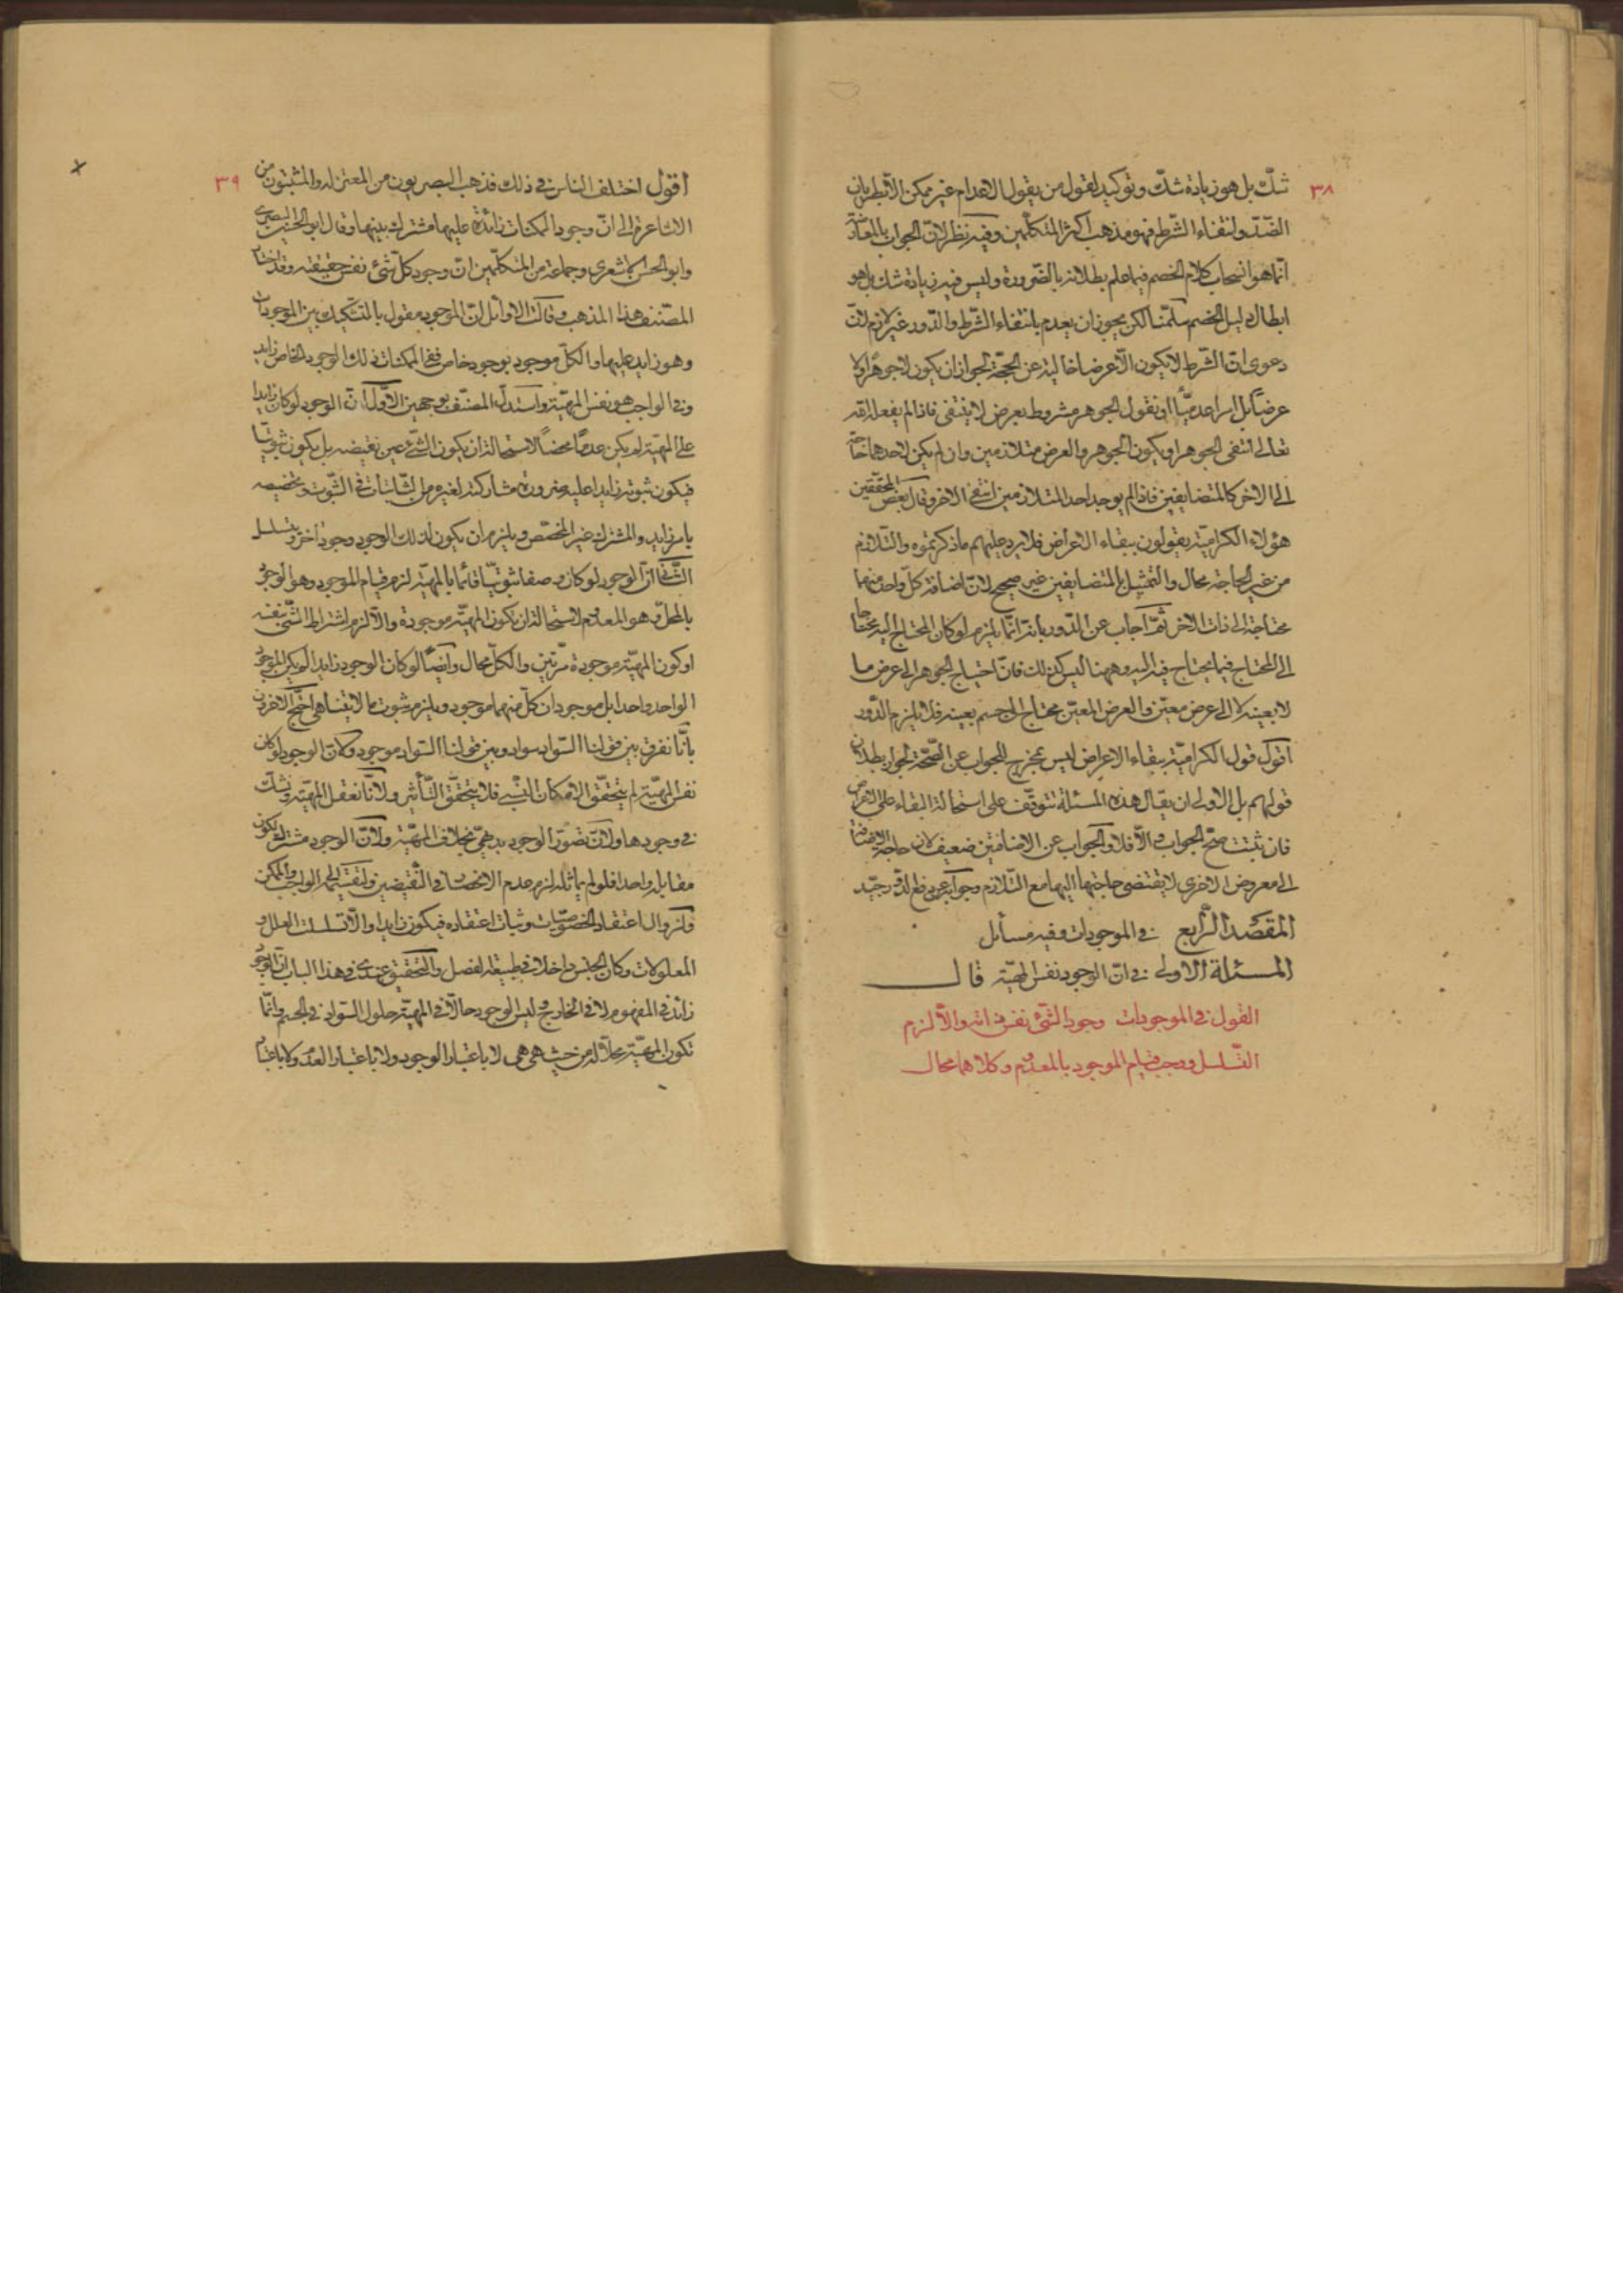 ٣٨
شك بل هو زيادة شك وتوكيد لقول من يقول الاعدام غير ممكن الا بطريان
الضد وانتفاء الشرط فهو مذهب اكثر المتكلمين وفيه نظر لان الجواب بالمعارضة
انما هو انسحاب كلام الخصم فيما علم بطلانه بالضرورة وليس فيه زيادة شك بل هو
ابطال دليل الخصم سلمنا لكن يجوز ان يعدم بانتفاء الشرط والدور غير لازم لان
دعوى ان الشرط لا يكون الا عرضا خالية عن الحجة لجواز ان يكون لا جوهرا ولا
عرضا بل امرا عدميا او نقول الجوهر مشروط بعرض لا ينتفى فاذا لم يفعله الله
تعالى انتفى الجوهر او يكون الجوهر والعرض متلازمين وان لم يكن لاحدهما حاجة
الى الاخر كالمتضايفين فاذا لم يوجد احد المتلازمين انتفى الاخر وقال بعض المحققين
هؤلاء الكرامية يقولون ببقاء الاعراض فلا يرد عليهم ما ذكرتموه والتلازم
من غير الحاجة محال والتمثيل بالمتضايفين غير صحيح لان اضافة كل واحد منهما
محتاجة الى ذات الاخر ثم اجاب عن الدور بانه انما يلزم لو كان المحتاج اليه محتاجا
الى المحتاج فيما يحتاج فيه اليه وههنا ليس كذلك فان احتياج الجوهر الى عرض ما
لا بعينه لا الى عرض معين والعرض المعين محتاج الى جسم بعينه فلا يلزم الدور
اقول قول الكرامية ببقاء الاعراض ليس بمخرج للجواب عن الصحة لجواز بطلان
قولهم بل الاولى ان يقال هذه المسئلة تتوقف على استحالة البقاء على الاعراض
فان ثبتت صح الجواب والا فلا والجواب عن الاضافتين ضعيف لان حاجة الاضافة
الى معروض الاخرى لا يقتضى حاجتها اليها مع التلازم وجوابه عن دفع الدور جيد
المقصد الرابع في الموجودات وفيه مسائل
المسئلة الاولى في ان الوجود نفس المهية قال
القول في الموجودات وجود الشئ نفس ذاته والا لزم
التسلسل ووجب قيام الموجود بالمعدوم وكلاهما محال
٣٩
اقول اختلف الناس في ذلك فذهب البصريون من المعتزلة والمثبتون من
الاشاعرة الى ان وجود الممكنات زائدة عليها مشترك بينها وقال ابو الحسين البصرى
وابو الحسن الاشعرى وجماعة من المتكلمين ان وجود كل شئ نفس حقيقته وقد اختار
المصنف هذا المذهب وقالت الاوائل ان الموجود مقول بالتشكيك بين الموجودات
وهو زايد عليها والكل موجود بوجود خاص ففى الممكنات ذلك الوجود الخاص زايد
وفى الواجب هو نفس المهية واستدل المصنف بوجهين الاول ان الوجود لو كان زايدا
على المهية لم يكن عدما محضا لاستحالة ان يكون الشئ عين نقيضه بل يكون ثبوتيا
فيكون ثبوته زايدا عليه ضرورة مشاركته لغيره من الثابتات في الثبوت وتخصيصه
بامر زايد والمشترك غير المختص ويلزم ان يكون لذلك الوجود وجود اخر ويتسلسل
الثانى ان الوجود لو كان وصفا ثبوتيا قائما بالمهية لزم قيام الموجود وهو الوجود
بالمحل وهو المعدوم لاستحالة ان يكون المهية موجودة والا لزم اشتراط الشئ بنفسه
او كون المهية موجودة مرتين والكل محال وايضا لو كان الوجود زايدا لم يكن الموجود
الواحد واحدا بل موجودان كل منهما موجود ويلزم ثبوت ما لا يتناهى احتج الاخرون
بانا نفرق بين قولنا السواد سواد وبين قولنا السواد موجود وكان الوجود لو كان
نفس المهية لم يتحقق الامكان النسبى فلا يتحقق التأثير ولانا نعقل المهية ونشك
في وجودها ولان تصور الوجود بديهى بخلاف المهية ولان الوجود مشترك لكون
مقابله واحدا فلو لم يماثله لزم عدم الانحصار في النقيضين ولقسمته الى الواجب والممكن
ولزوال اعتقاد الخصوصيات وثبات اعتقاده فيكون زايدا والا تسلسلت العلل و
المعلولات وكان الجنس داخلا في طبيعة الفصل والتحقيق عندى في هذا الباب ان الوجود
زائد في المفهوم لا في الخارج وليس الوجود حالا في المهية حلول السواد في الجسم وانما
تكون المهية محلا له من حيث هى هى لا باعتبار الوجود ولا باعتبار العدم ولا باعتبار